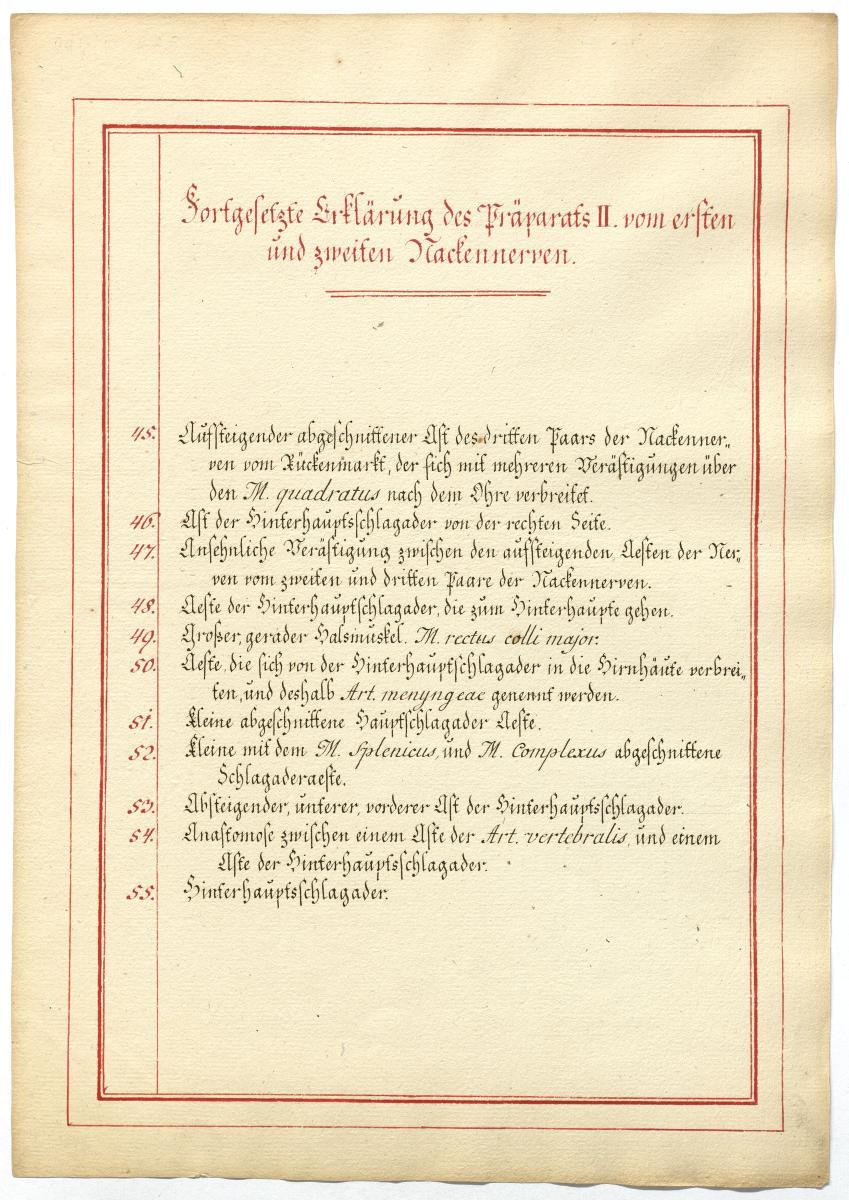 Fortgesetzte Erklärung des Präparats II. vom ersten
und zweiten Nackennerven.
45. Aufsteigender abgeschnittener Ast des dritten Paars der Nackenner„
ven vom Rückenmarkt, der sich mit mehreren Verästigungen über
den M. quadratus nach dem Ohre verbreitet.
46. Ast der Hinterhauptsschlagader von der rechten Seite.
47. Ansehnliche Verästigung zwischen den aufsteigenden Aesten der Ner„
ven vom zweiten und dritten Paare der Nackennerven.
48. Aeste der Hinterhauptschlagader, die zum Hinterhaupte gehen.
49. Großer, gerader Halsmuskel. M. rectus colli major.
50. Aeste, die sich von der Hinterhauptschlagader in die Hirnhäute verbrei„
ten, und deshalb Art. menyngeae genennt werden.
51. Kleine abgeschnittene Hauptschlagader Aeste.
52. Kleine mit dem M. Splenicus, und M. Complexus abgeschnittene
Schlagaderaeste.
53. Absteigender, unterer, vorderer Ast der Hinterhauptsschlagader.
54. Anastomose zwischen einem Aste der Art. vertebralis, und einem
Aste der Hinterhauptsschlagader.
55. Hinterhauptsschlagader.